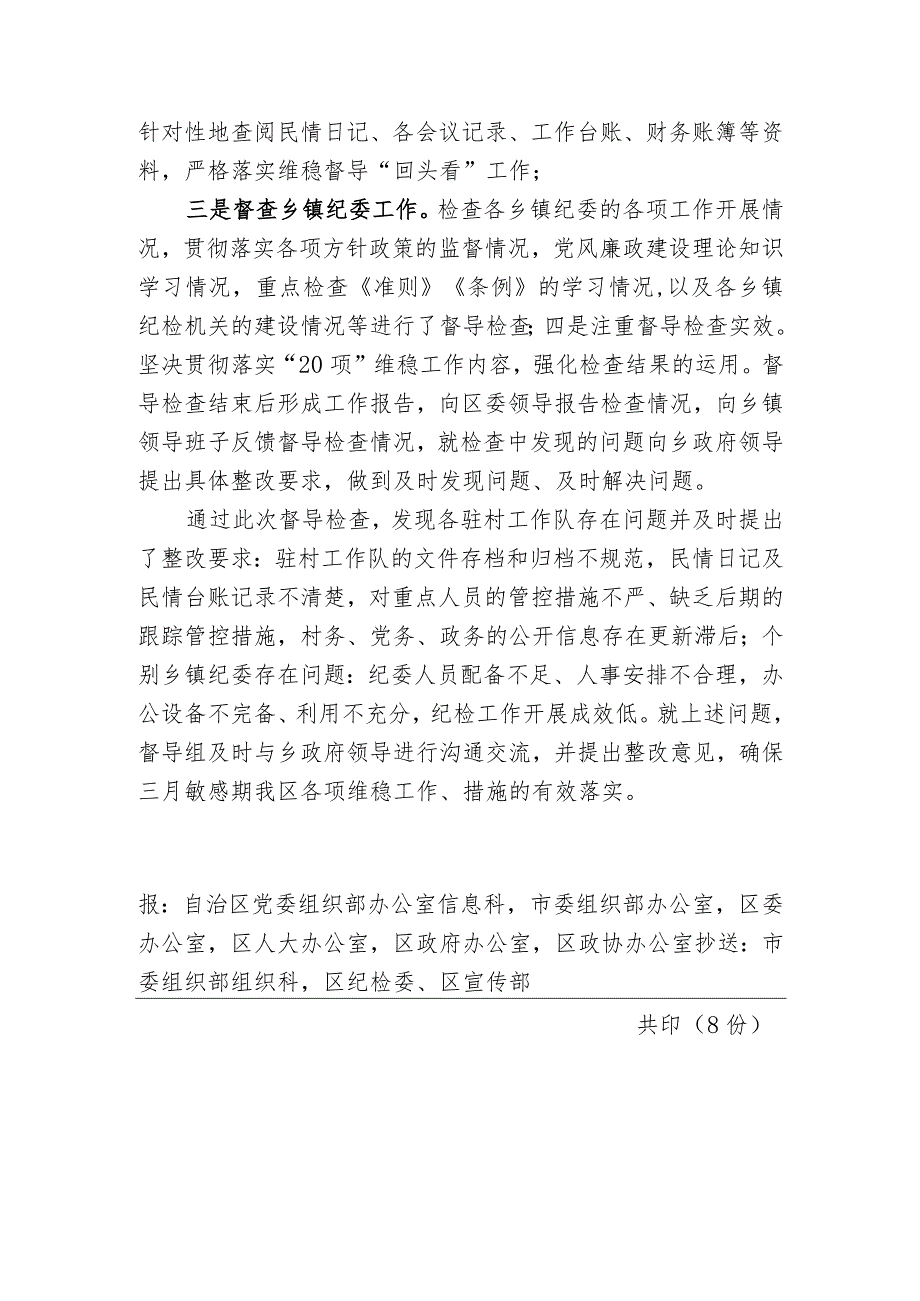 针对性地查阅民情日记、各会议记录、工作台账、财务账簿等资
料，严格落实维稳督导“回头看”工作；
三是督查乡镇纪委工作。检查各乡镇纪委的各项工作开展情
况，贯彻落实各项方针政策的监督情况，党风廉政建设理论知识
学习情况，重点检查《准则》《条例》的学习情况,以及各乡镇
纪检机关的建设情况等进行了督导检查；四是注重督导检查实效。
坚决贯彻落实“20项”维稳工作内容，强化检查结果的运用。督
导检查结束后形成工作报告，向区委领导报告检查情况，向乡镇
领导班子反馈督导检查情况，就检查中发现的问题向乡政府领导
提出具体整改要求，做到及时发现问题、及时解决问题。
通过此次督导检查，发现各驻村工作队存在问题并及时提出
了整改要求：驻村工作队的文件存档和归档不规范，民情日记及
民情台账记录不清楚，对重点人员的管控措施不严、缺乏后期的
跟踪管控措施，村务、党务、政务的公开信息存在更新滞后；个
别乡镇纪委存在问题：纪委人员配备不足、人事安排不合理，办
公设备不完备、利用不充分，纪检工作开展成效低。就上述问题，
督导组及时与乡政府领导进行沟通交流，并提出整改意见，确保
三月敏感期我区各项维稳工作、措施的有效落实。
报：自治区党委组织部办公室信息科，市委组织部办公室，区委
办公室，区人大办公室，区政府办公室，区政协办公室抄送：市
委组织部组织科，区纪检委、区宣传部
共印（8份）